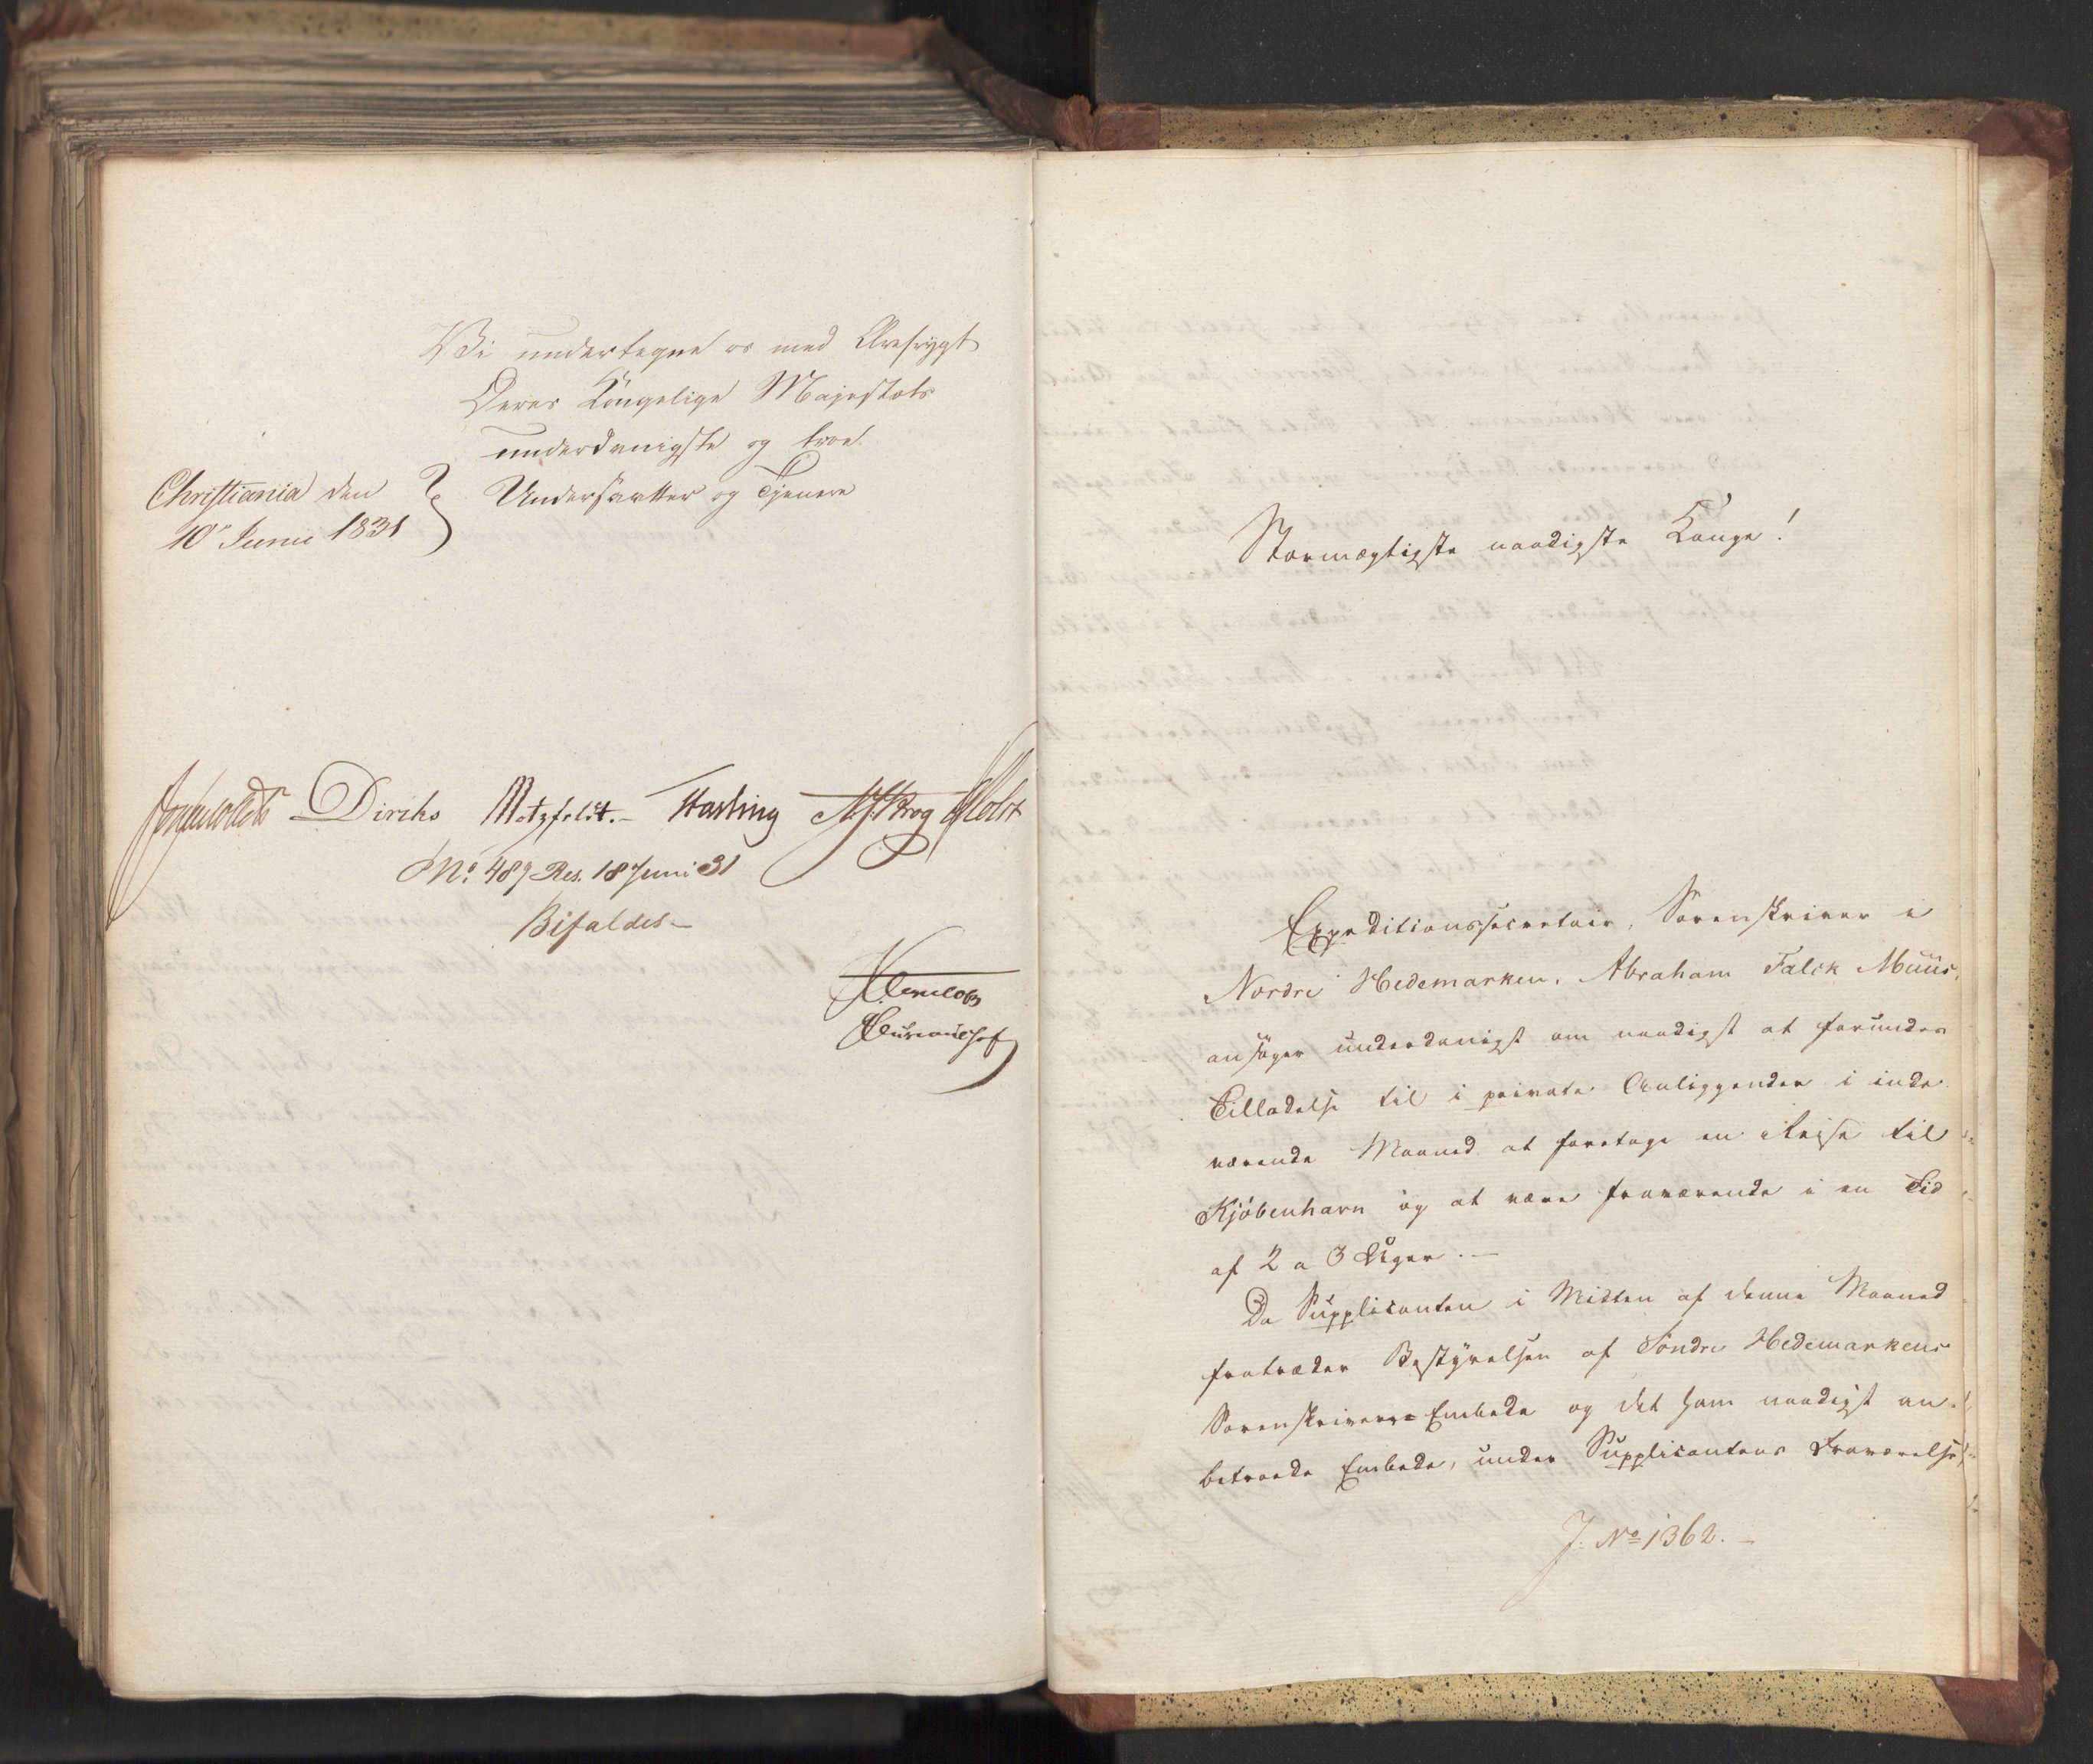 Vi undertegne os med Ærefrygt
Deres Kongelige Majestæts
underdanigste og troe
Undersaatter og Tjenere
Christiania den
10de Junii 1831
Diriks Motzfeldt. Krog Holst
No. 489 Res. 18 Juni 31
Bifaldes
Stormægtigste naadigste Konge!
Expeditionssecretair, Sorenskriver i
Nordre Hedemarken, Abraham Falck Muus,
ansøger underdanigst om naadigst at forundes
Tilladelse til i private Anliggender i inde
værende Maaned at foretage en Reise til
Kjöbenhavn og at være fraværende i en Tid
af 2 a 3 Uger.—
Da Supplicanten i Midten af denne Maaned
fratræder Bestyrelsen af Söndre Hedemarkens
Sorenskriver=Embede og det ham naadigst an-
betroede Embede, under Supplicantens Fraværelse,
J. No 1362.—